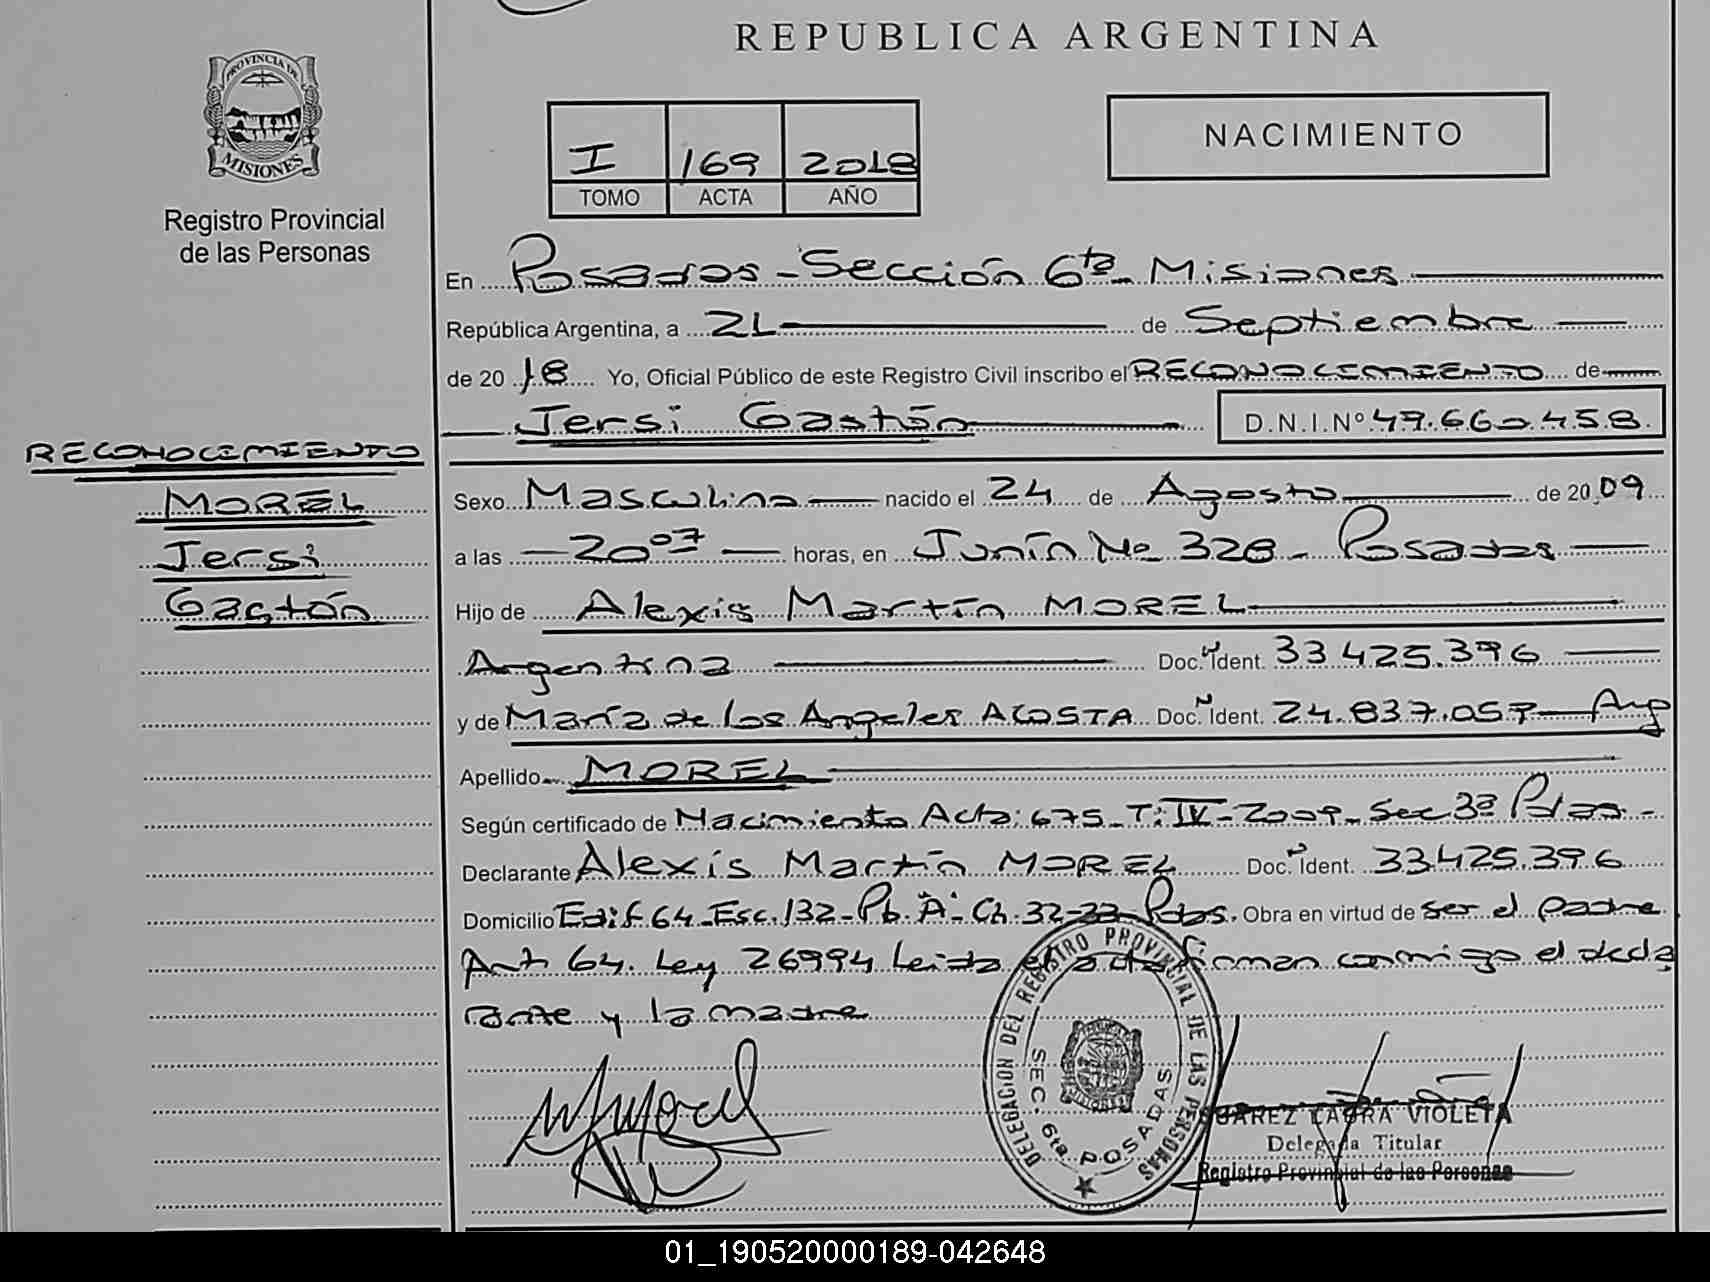 REPUBLICA ARGENTINA
PROVINCIA DE
MISIONES
Registro Provincial
de las Personas
NACIMIENTO
I 169 2018
TOMO ACTA AÑO
En Posadas - Sección 6ta - Misiones
República Argentina, a 21 de Septiembre
de 20 18 Yo, Oficial Público de este Registro Civil inscribo el RECONOCIMIENTO de
Jersi Gastón D.N.I.Nº 47.660.458.
RECONOCIMIENTO
MOREL
Jersi
Gastón
Sexo Masculino nacido el 24 de Agosto de 20 09
a las 20 07 horas, en Junín Nº 328 - Posadas
Hijo de Alexis Martín MOREL
Argentina Doc. Ident. 33.425.396
y de María de los Angeles ACOSTA Doc. N Ident. 24.837.057 - Arg
Apellido MOREL
Según certificado de Nacimiento Acta: 675 - T: IV - 2009 - Sec 3ª Pdas -
Declarante Alexis Martín MOREL Doc. N Ident. 33.425.396
Domicilio Edif 64 - Esc. 132 - Pb. "A" - Ch. 32-33 - Pdas. Obra en virtud de ser el padre
Art 64. Ley 26994 Leida el acta firman conmigo el decla
rante y la madre
DELEGACION DEL REGISTRO PROVINCIAL DE LAS PERSONAS
SEC. 6ta. POSADAS
SUAREZ LAURA VIOLETA
Delegada Titular
Registro Provincial de las Personas
01_190520000189-042648